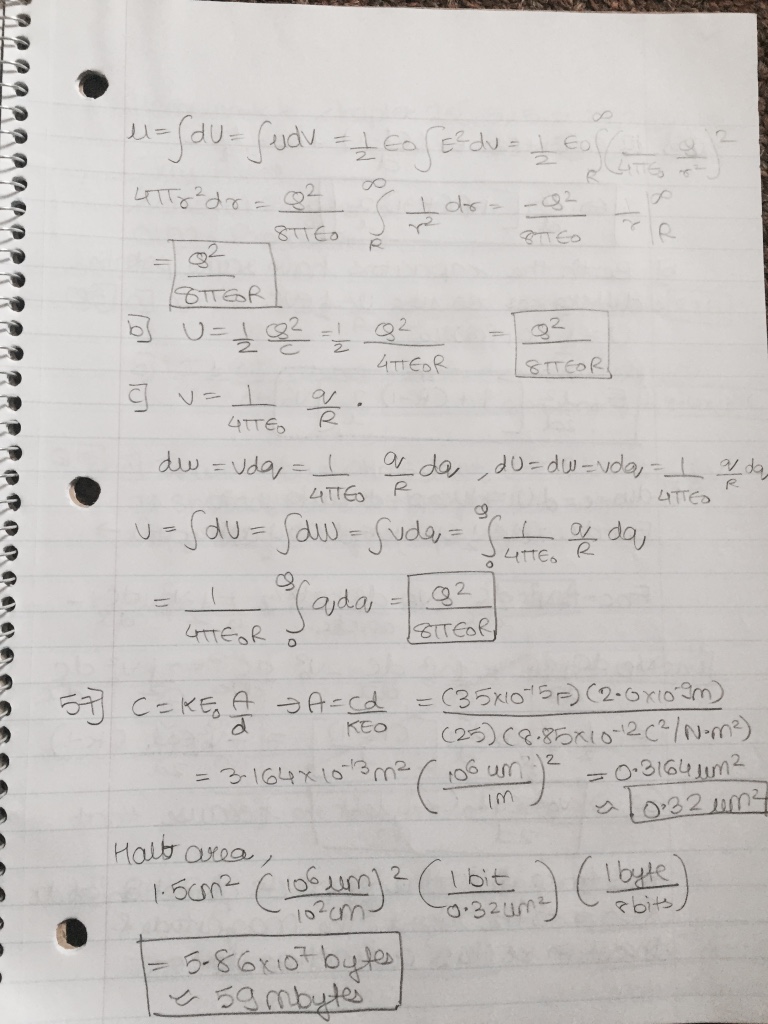 u = ∫dU = ∫udV = 1/2 ϵ0 ∫E²dv = 1/2 ϵ0 ∫_R^∞ (1/4πϵ0 Q/r²)²
4πr²dr = Q²/8πϵ0 ∫_R^∞ 1/r² dr = -Q²/8πϵ0 1/r |_R^∞
= Q²/8πϵ0R
b] U = 1/2 Q²/C = 1/2 Q²/4πϵ0R = Q²/8πϵ0R
c] V = 1/4πϵ0 q/R .
dw = vdq = 1/4πϵ0 q/R dq , dU = dw = vdq = 1/4πϵ0 q/R dq
U = ∫dU = ∫dW = ∫vdq = ∫_0^Q 1/4πϵ0 q/R dq
= 1/4πϵ0R ∫_0^Q qdq = Q²/8πϵ0R
57] C = Kϵ0 A/d → A = Cd/Kϵ0 = (35x10-15F)(2.0x10-9m)/(25)(8.85x10-12C²/N·m²)
= 3.164x10-13m² (106 um/1m)² = 0.3164um²
≈ 0.32 um²
Half area,
1.5cm² (106 um/10²cm)² (1 bit/0.32um²) (1 byte/8bits)
= 5.86x107 bytes
≈ 59 mbytes